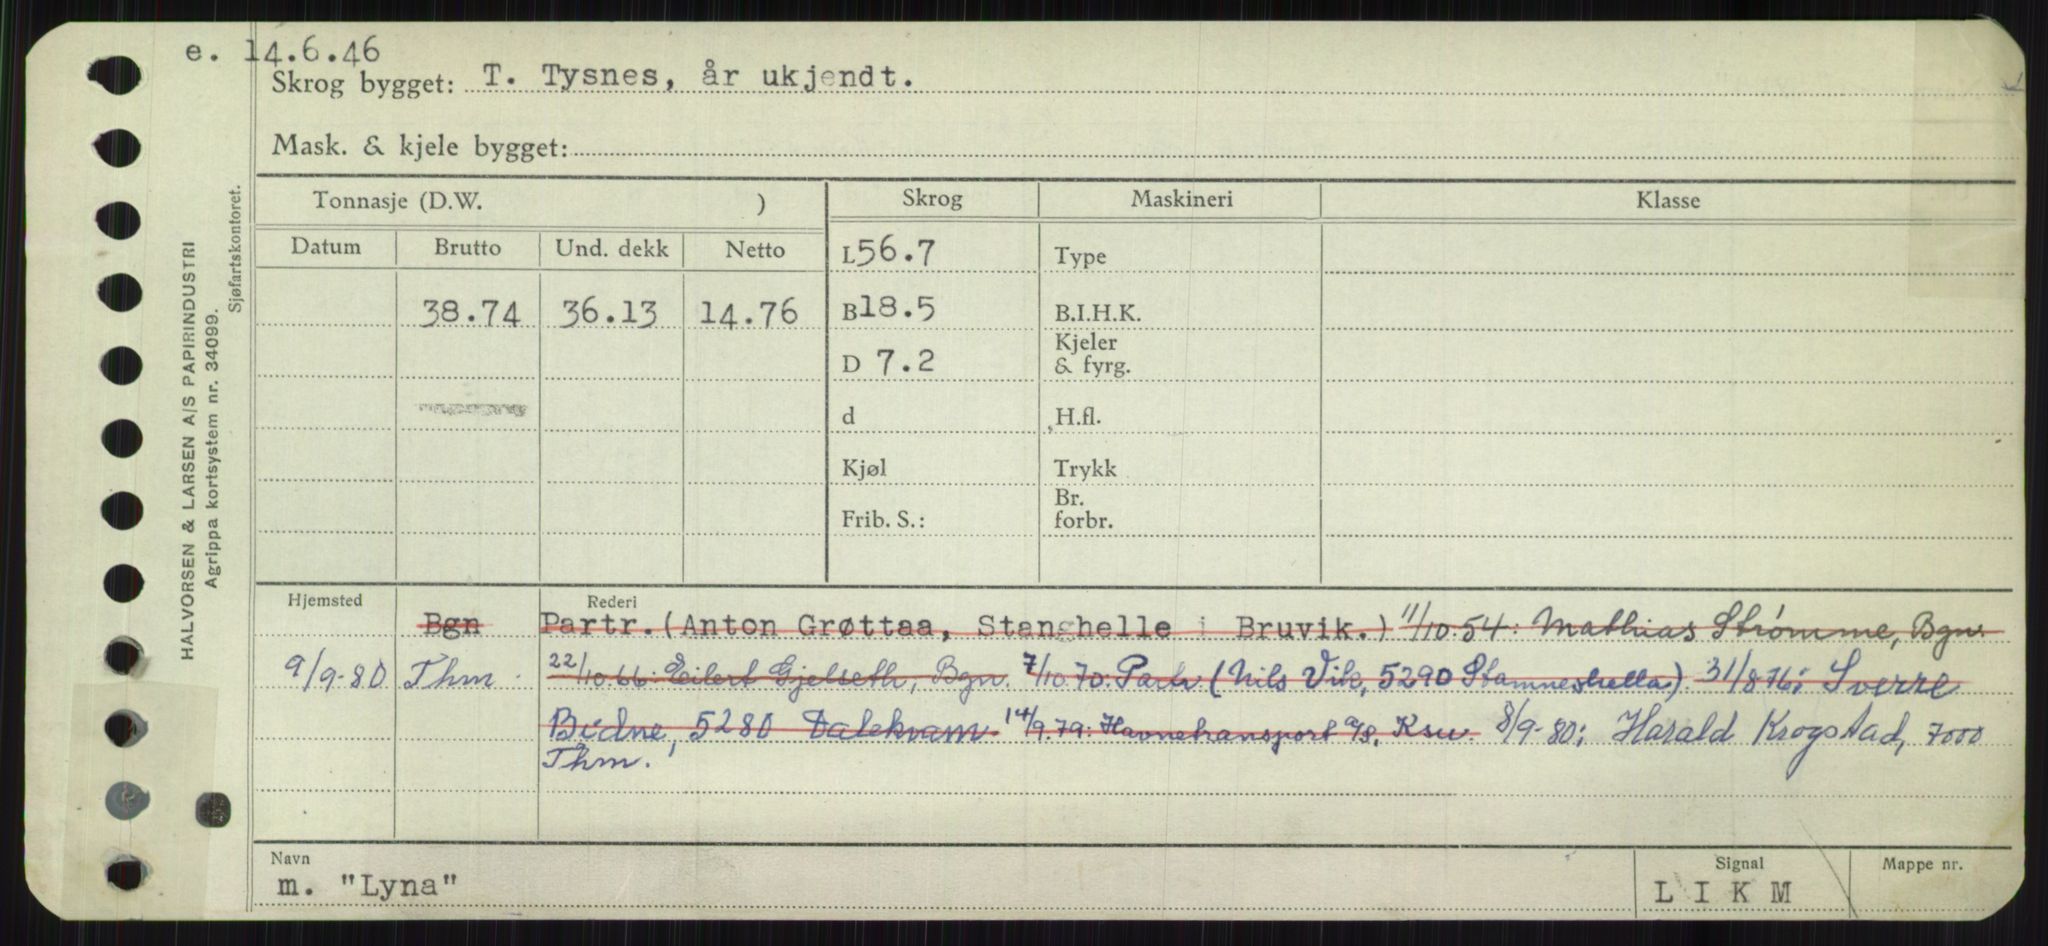 e. 14.6.46
Skrog bygget: T. Tysnes, år ukjendt.
Mask. & kjele bygget:
Tonnasje (D.W. ) Skrog Maskineri Klasse
Datum Brutto Und. dekk Netto L 56.7 Type
38.74 36.13 14.76 B 18.5 B.I.H.K.
D 7.2 Kjeler & fyrg.
d H.fl.
Kjøl Trykk
Frib. S.: Br. forbr.
Hjemsted Rederi
Bgn Partr. (Anton Grøttaa, Stanghelle i Bruvik.) 11/10.54: Mathias Strømme, Bgn.
9/9-80 Thm. 22/10.66: Eilert Gjelseth, Bgn. 7/10.70: Partr (Nils Vik, 5290 Stamneshella). 31/8.76: Sverre
Bidne, 5280 Dalekvam. 14/9.79: Havnetransport A/S, Ksu. 8/9-80: Harald Krogstad, 7000
Thm.
Navn Signal Mappe nr.
m. "Lyna" L I K M
HALVORSEN & LARSEN A/S PAPIRINDUSTRI
Agrippa kortsystem nr. 34099.
Sjøfartskontoret.